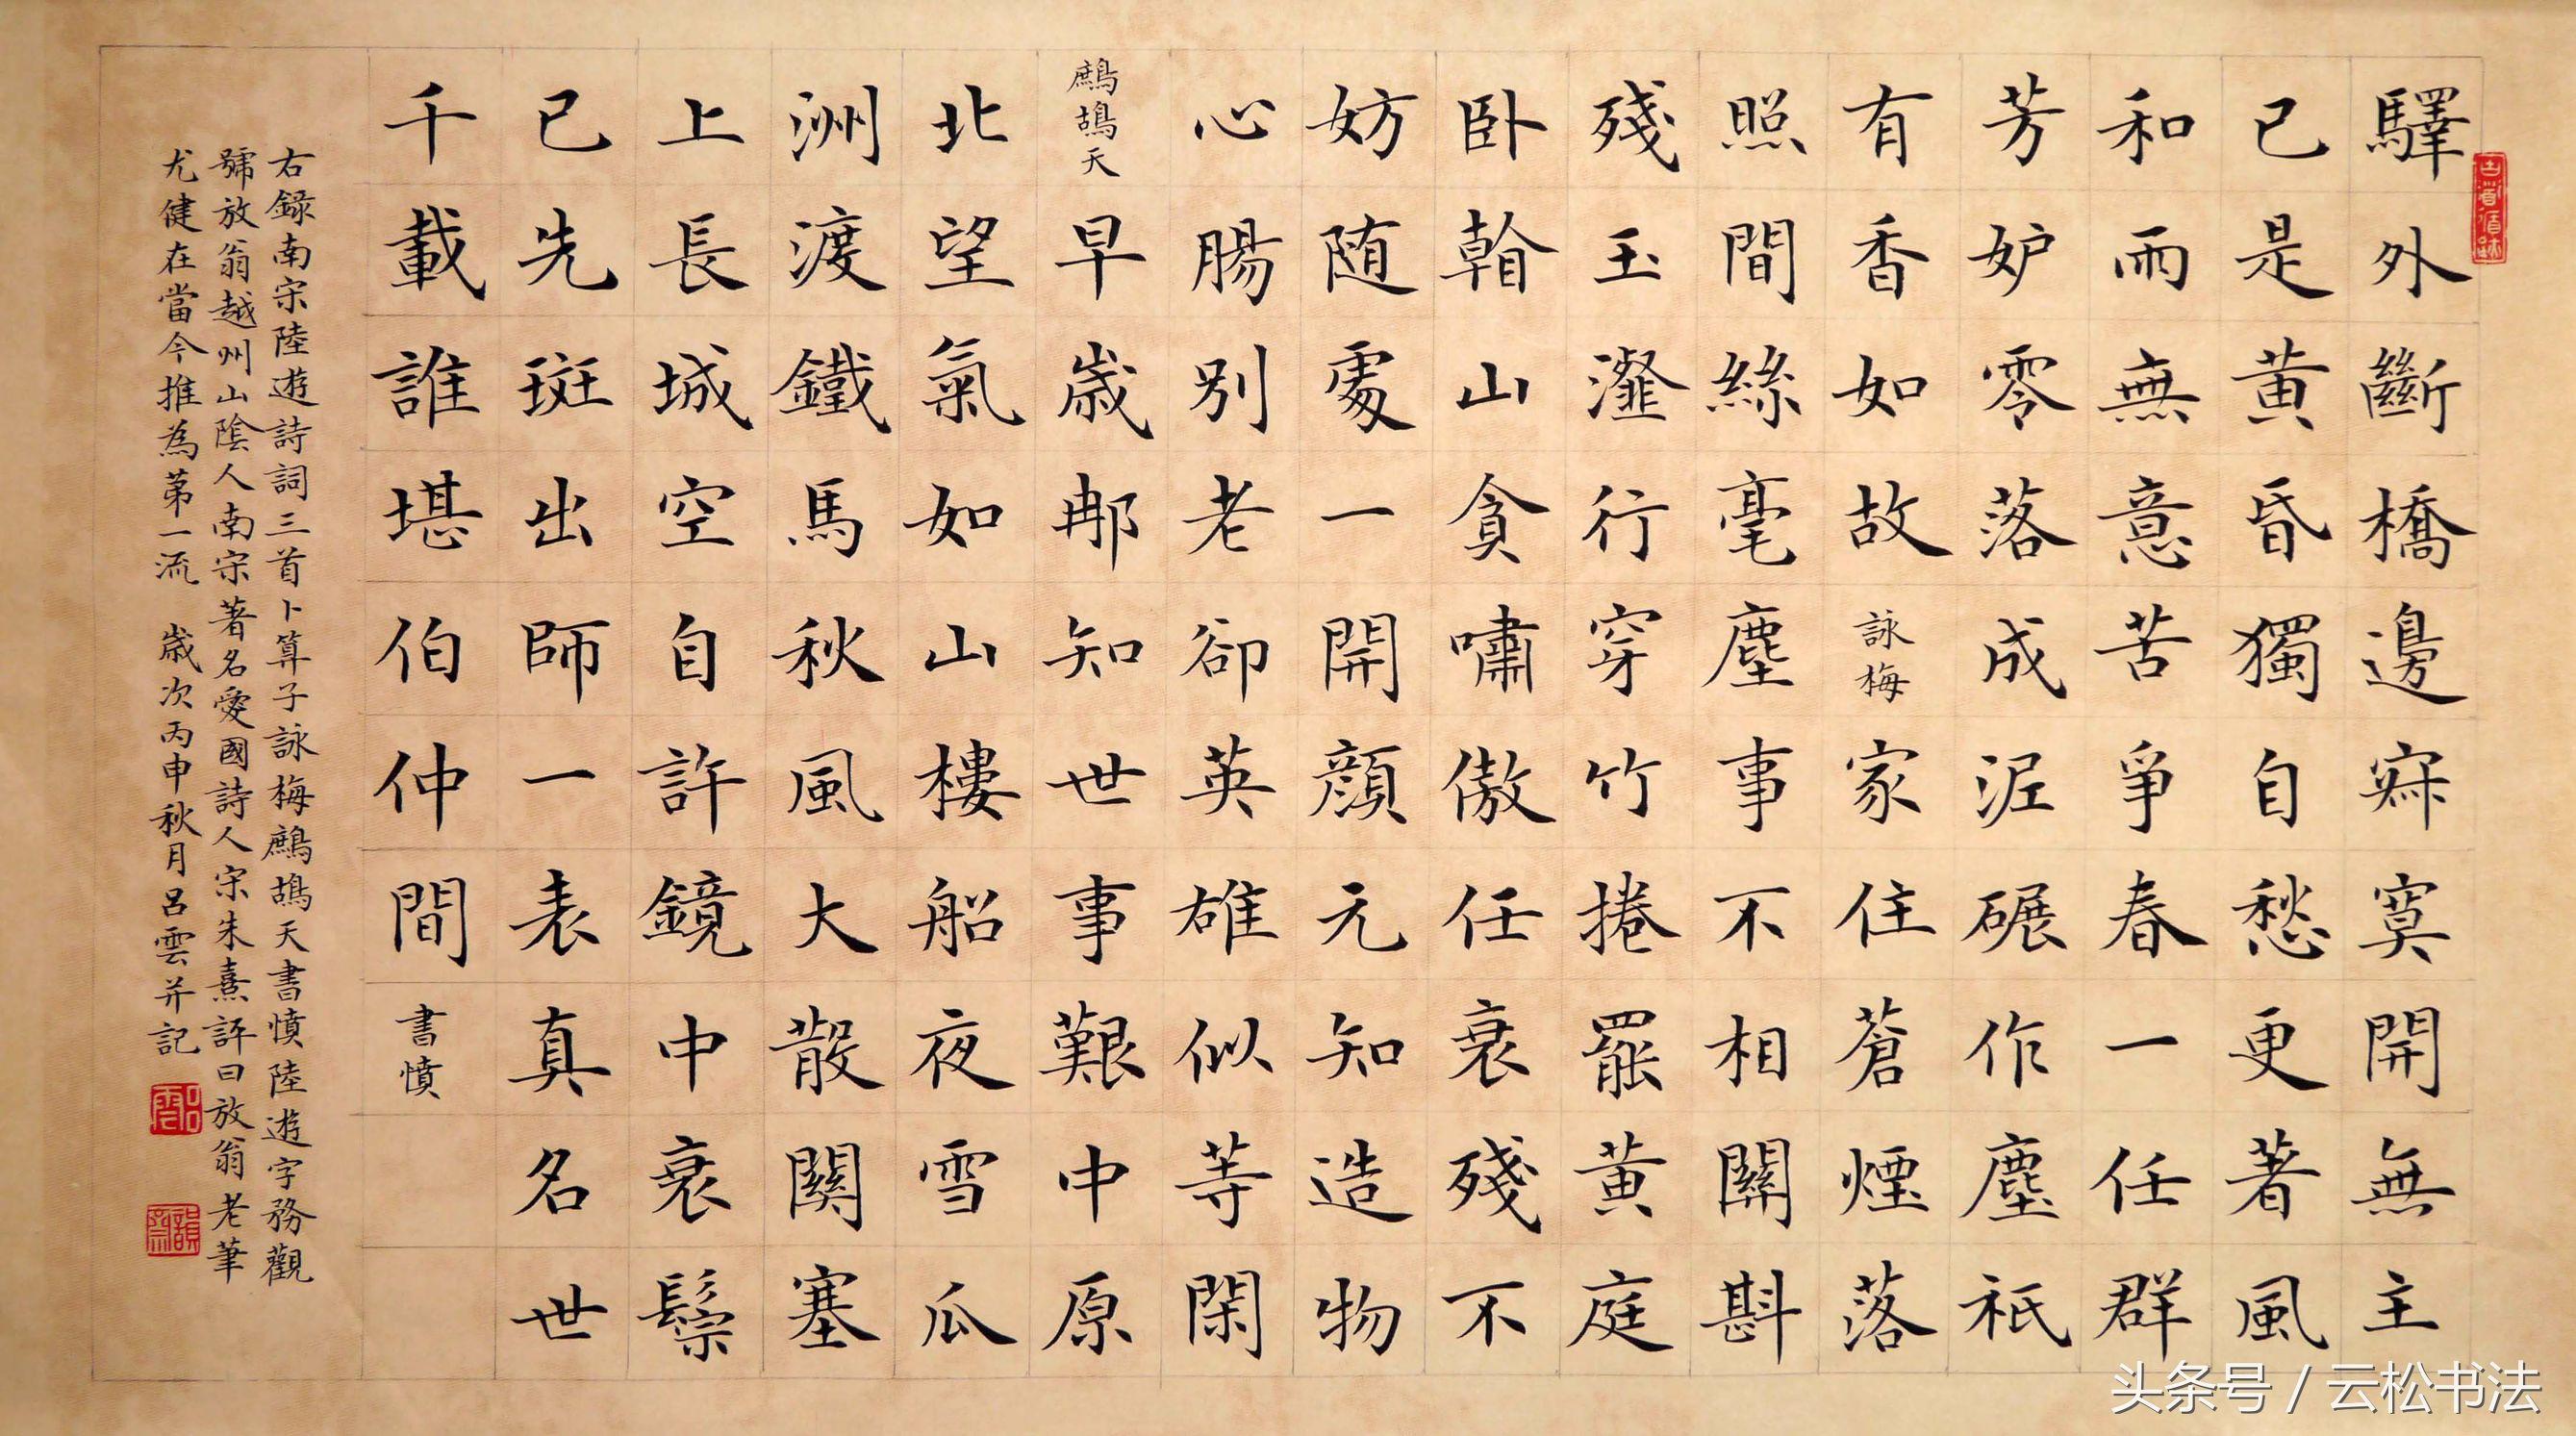 驛外斷橋邊寂寞開無主
已是黃昏獨自愁更著風
和雨無意苦爭春一任群
芳妒零落成泥碾作塵祇
有香如故 詠梅 家住蒼煙落
照間絲毫塵事不相關斟
殘玉瀣行穿竹捲罷黃庭
卧翰山貪嘯傲任衰殘不
妨随處一開顏元知造物
心腸別老卻英雄似等閑
鷓鴣天 早歲那知世事艱中原
北望氣如山樓船夜雪瓜
洲渡鐵馬秋風大散關塞
上長城空自許鏡中衰鬢
已先斑出師一表真名世
千載誰堪伯仲間 書憤
右錄南宋陸遊詩詞三首卜算子詠梅鷓鴣天書憤陸遊字務觀
號放翁越州山陰人南宋著名愛國詩人宋朱熹評曰放翁老筆
尤健在當今推為第一流 歲次丙申秋月呂雲并記
头条号 / 云松书法